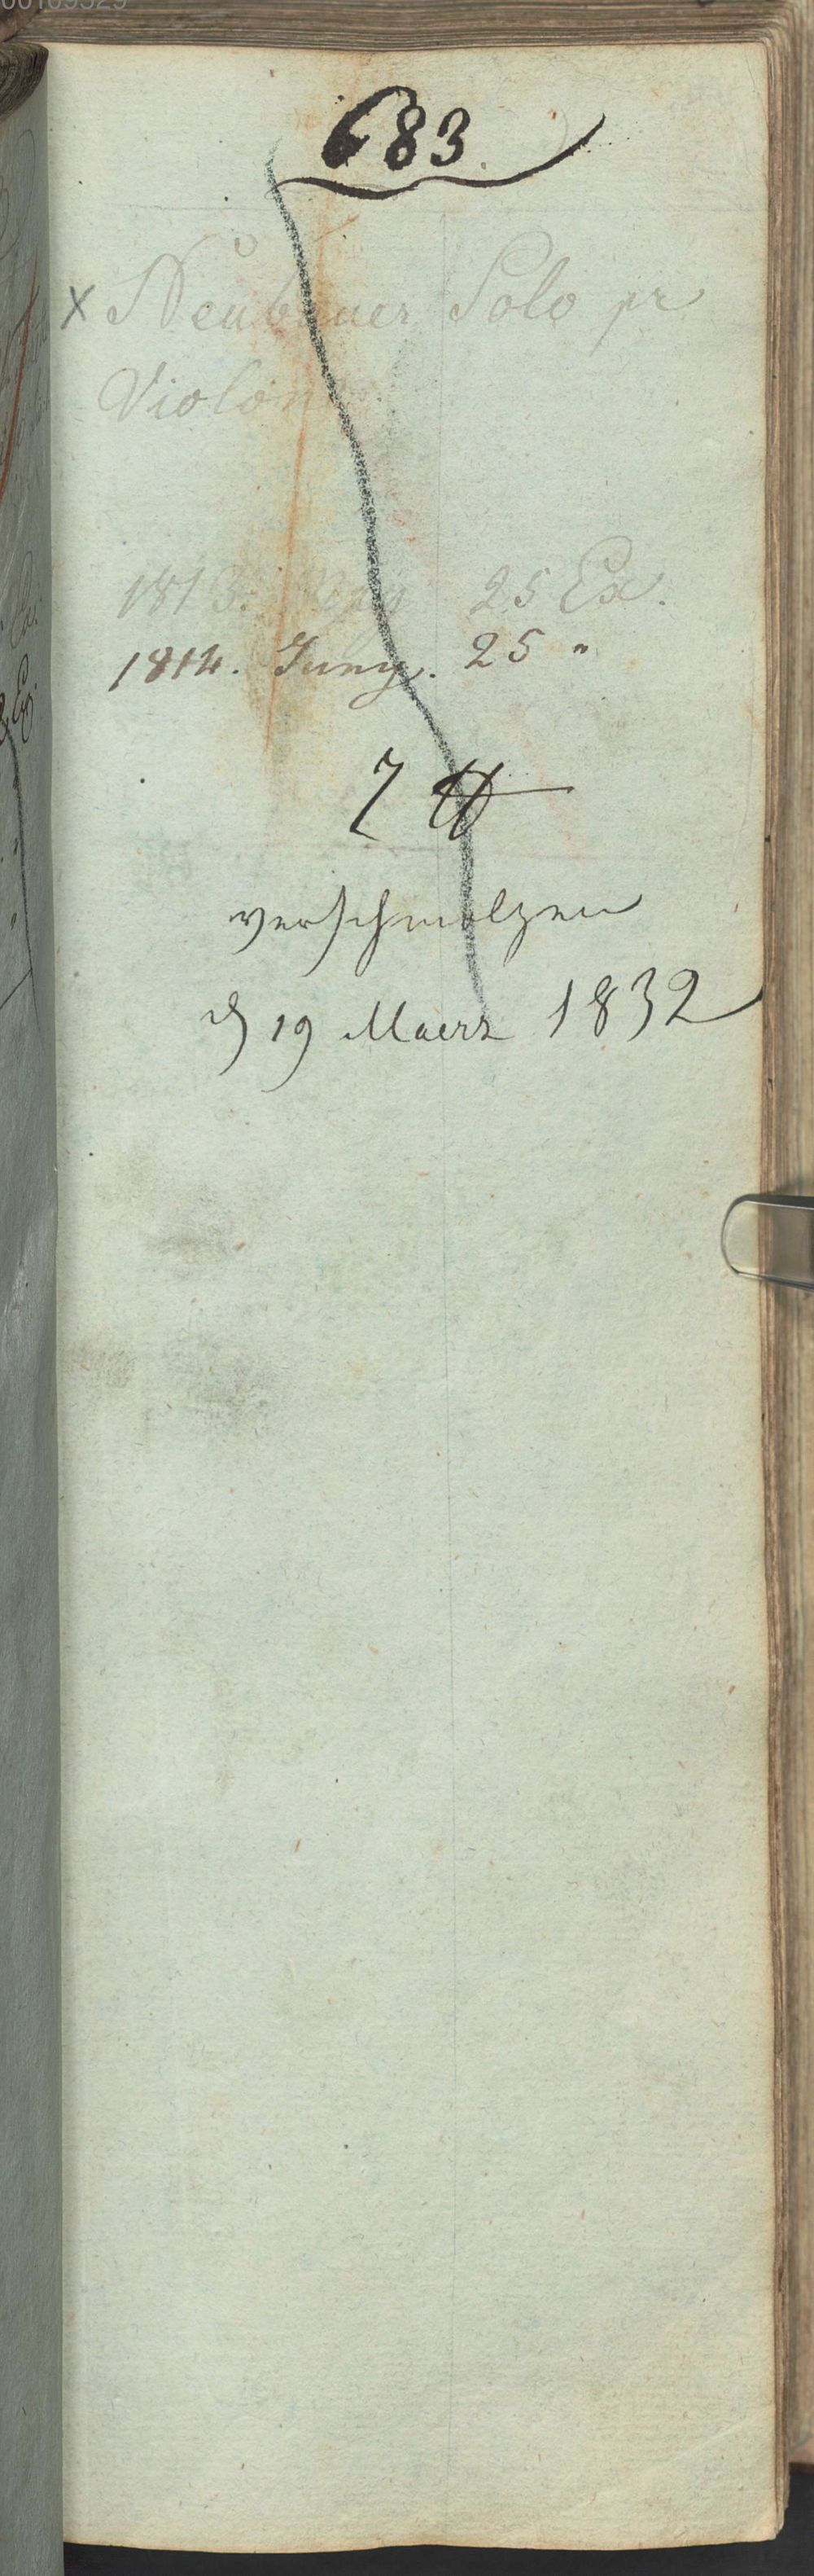 683
x Neubauer Solo pr
Violon
1813. 25 Ex.
1814. Juny. 25 "
7 ℔
verschmolzen
d 19 Maerz 1832